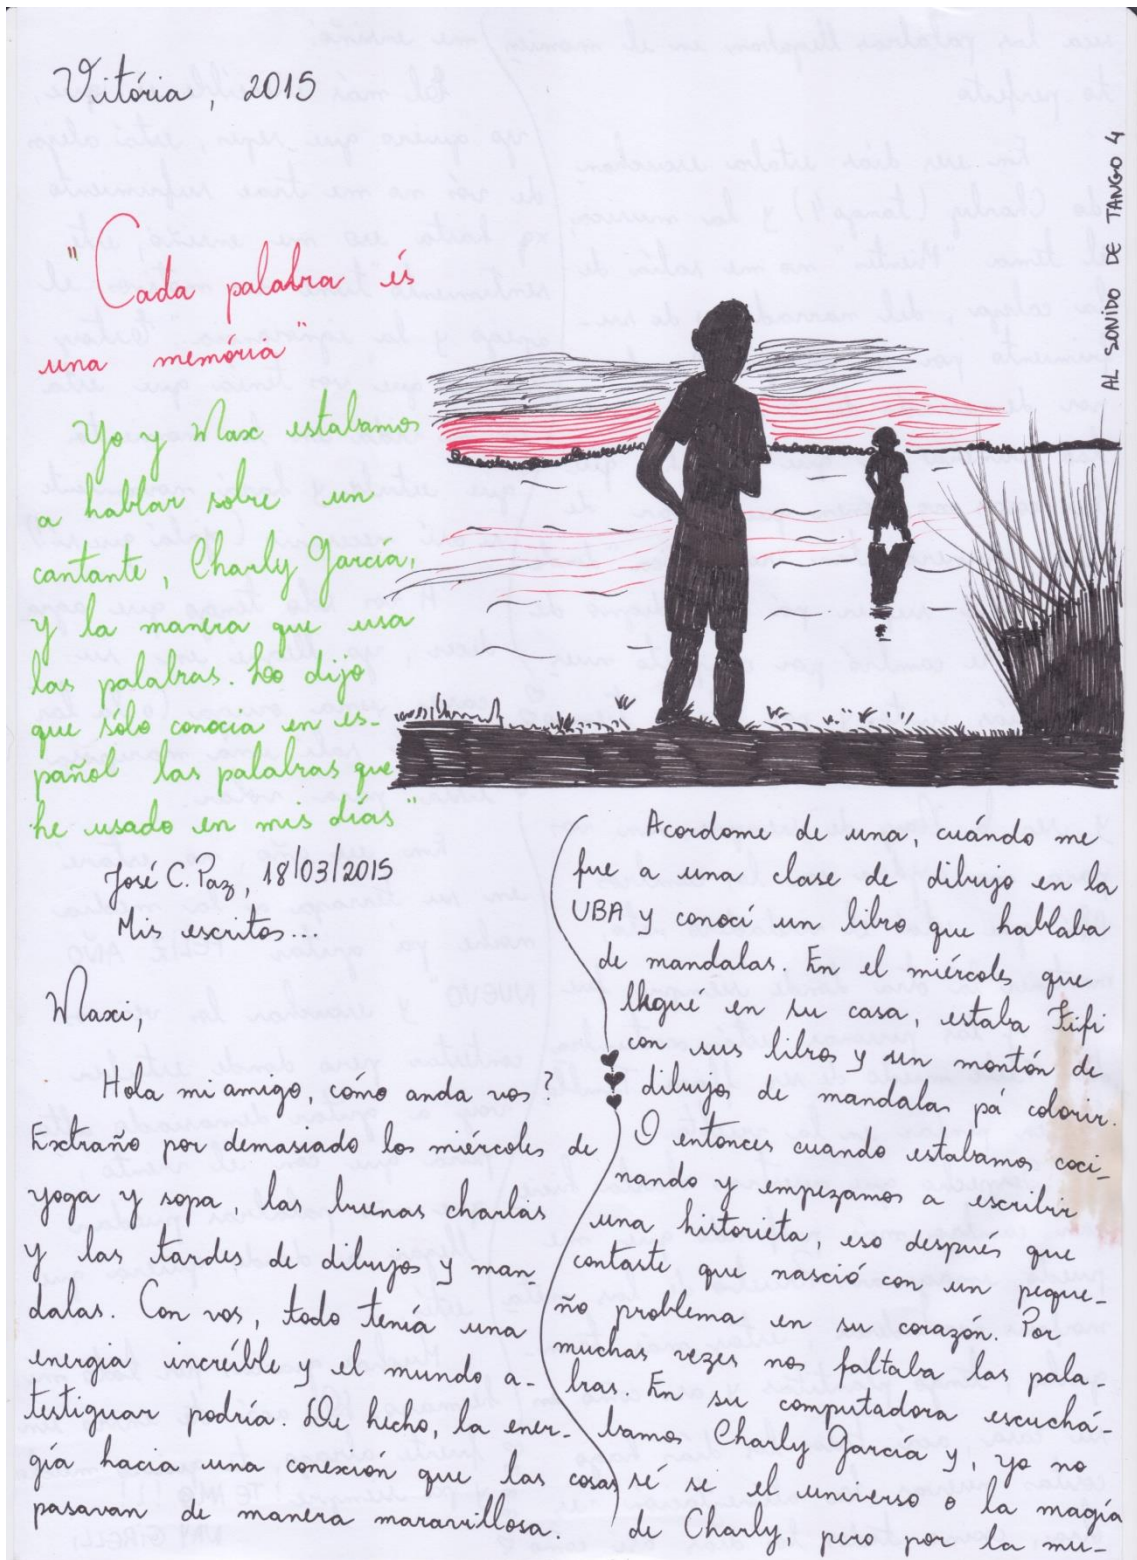 Vitória, 2015
AL SONIDO DE TANGO 4
"Cada palabra és
una memória"
Yo y Maxe estabamos
a hablar sobre un
cantante, Charly García,
y la manera que usa
las palabras. Le dijo
que sólo conocia en es-
pañol las palabras que
he usado en mis días"
José C. Paz, 18/03/2015
Mis escritos...
Maxi,
Hola mi amigo, cómo anda vos?
Extraño por demasiado los miércoles de
yoga y sopa, las buenas charlas
y las tardes de dibujos y man-
dalas. Con vos, todo tenía una
energia increíble y el mundo a-
testiguar podría. De hecho, la ener-
gía hacia una conexión que las cosas
pasavan de manera maravillosa.
Acordome de una, cuándo me
fue a una clase de dibujo en la
UBA y conocí un libro que hablaba
de mandalas. En el miércoles que
llegué en su casa, estaba Fifi
con sus libros y un montón de
dibujos de mandalas pá colorir.
O entonces cuando estabamos coci-
nando y empezamos a escribir
una historieta, eso después que
contaste que nasció con un peque-
ño problema en su corazón. Por
muchas vezes nos faltaba las pala-
bras. En su computadora escuchá-
bamos Charly García y, yo no
sé si el universo o la magía
de Charly, pero por la mu-